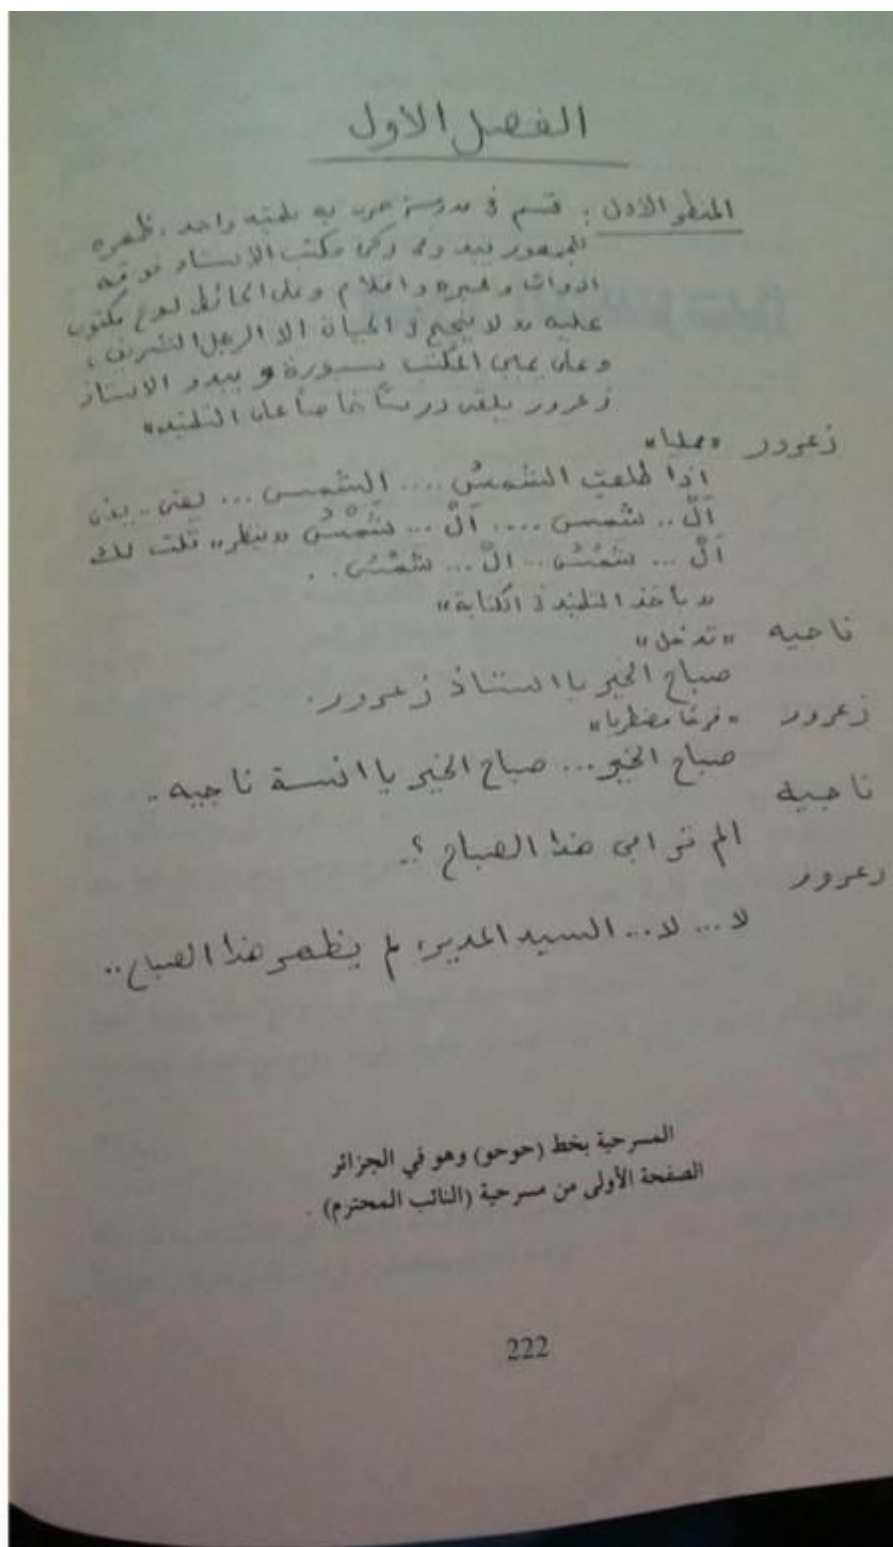 الفصل الاول
المنظر الاول : قسم في مدرسة حرب به تلميذ واحد، ظهره
للجمهور يبدو في ركن مكتب الاستاذ فوقه
ادوات و محبره و اقلام و على الحائط لوح مكتوب
عليه «لا ينجح في الحياة الا الرجل الشريف»
و على يمين المكتب سبورة و يبدو الاستاذ
زعرور يلقى درسًا خاصًا على التلميذ»
زعرور «مملا»
اذا طلعت الشمسُ .... الشمس ... يعنى .. يعنى
اَلْ .. شمس .... اَلْ ... شَمْسُ «ينظر» قلت لك
اَلْ ... شَمْسُ .. الْ ... شَمْسُ . .
«ياخذ التلميذ في الكتابة»
ناجيه «تدخل»
صباح الخير يا استاذ زعرور .
زعرور «فرحًا مضطربا»
صباح الخير ... صباح الخير يا انسة ناجيه ..
ناجيه
الم تر ابى هذا الصباح ؟..
زعرور
لا ... لا ... السيد المدير، لم يظهر هذا الصباح ..
المسرحية بخط (حوحو) وهو في الجزائر
الصفحة الأولى من مسرحية (النائب المحترم) .
222